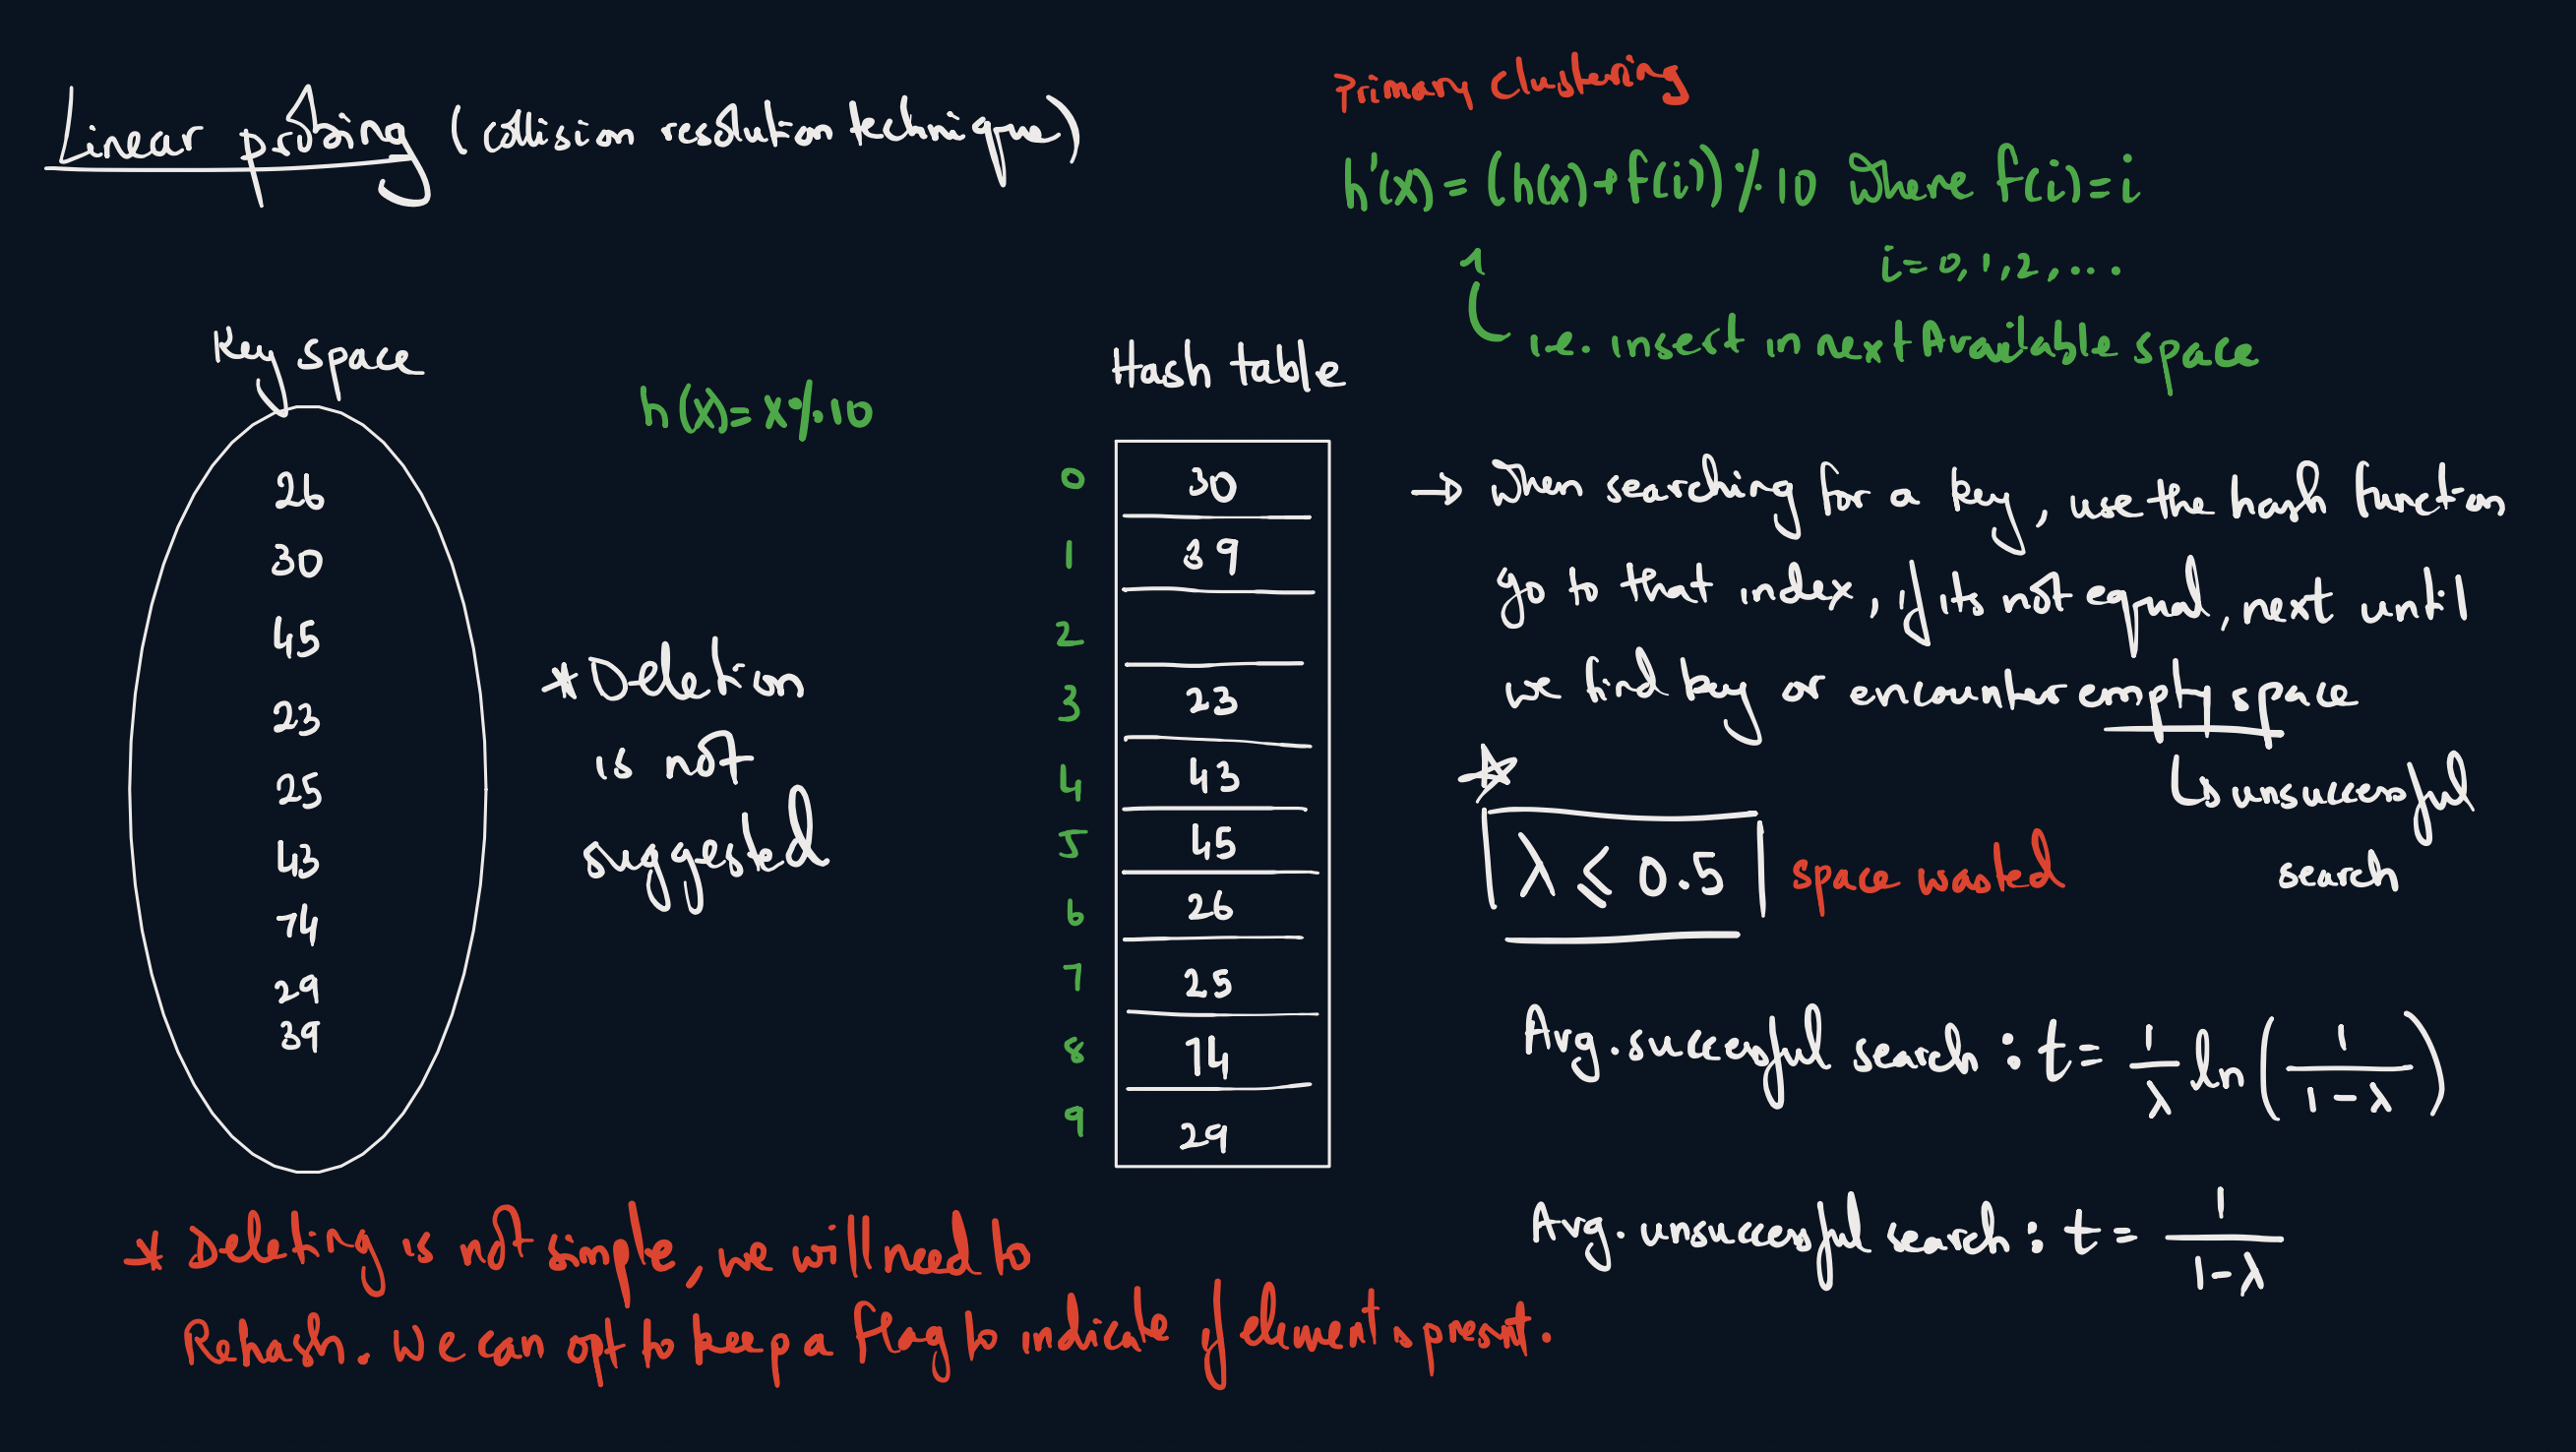 Linear probing (collision resolution technique)
Primary clustering
h'(x) = (h(x)+f(i)) % 10 where f(i)=i
i=0,1,2,....
i.e. insert in next Available space
Key space
26
30
45
23
25
43
74
29
39
h(x)= x%10
*Deletion
is not
suggested
Hash table
0 30
1 39
2
3 23
4 43
5 45
6 26
7 25
8 74
9 29
→ When searching for a key, use the hash function
go to that index, if its not equal, next until
we find key or encounter empty space
↳ unsuccessful
search
λ ≤ 0.5 space wasted
Avg. successful search : t = 1/λ ln(1/(1-λ))
Avg. unsuccessful search : t = 1/(1-λ)
* Deleting is not simple, we will need to
Rehash. We can opt to keep a flag to indicate if element is present.